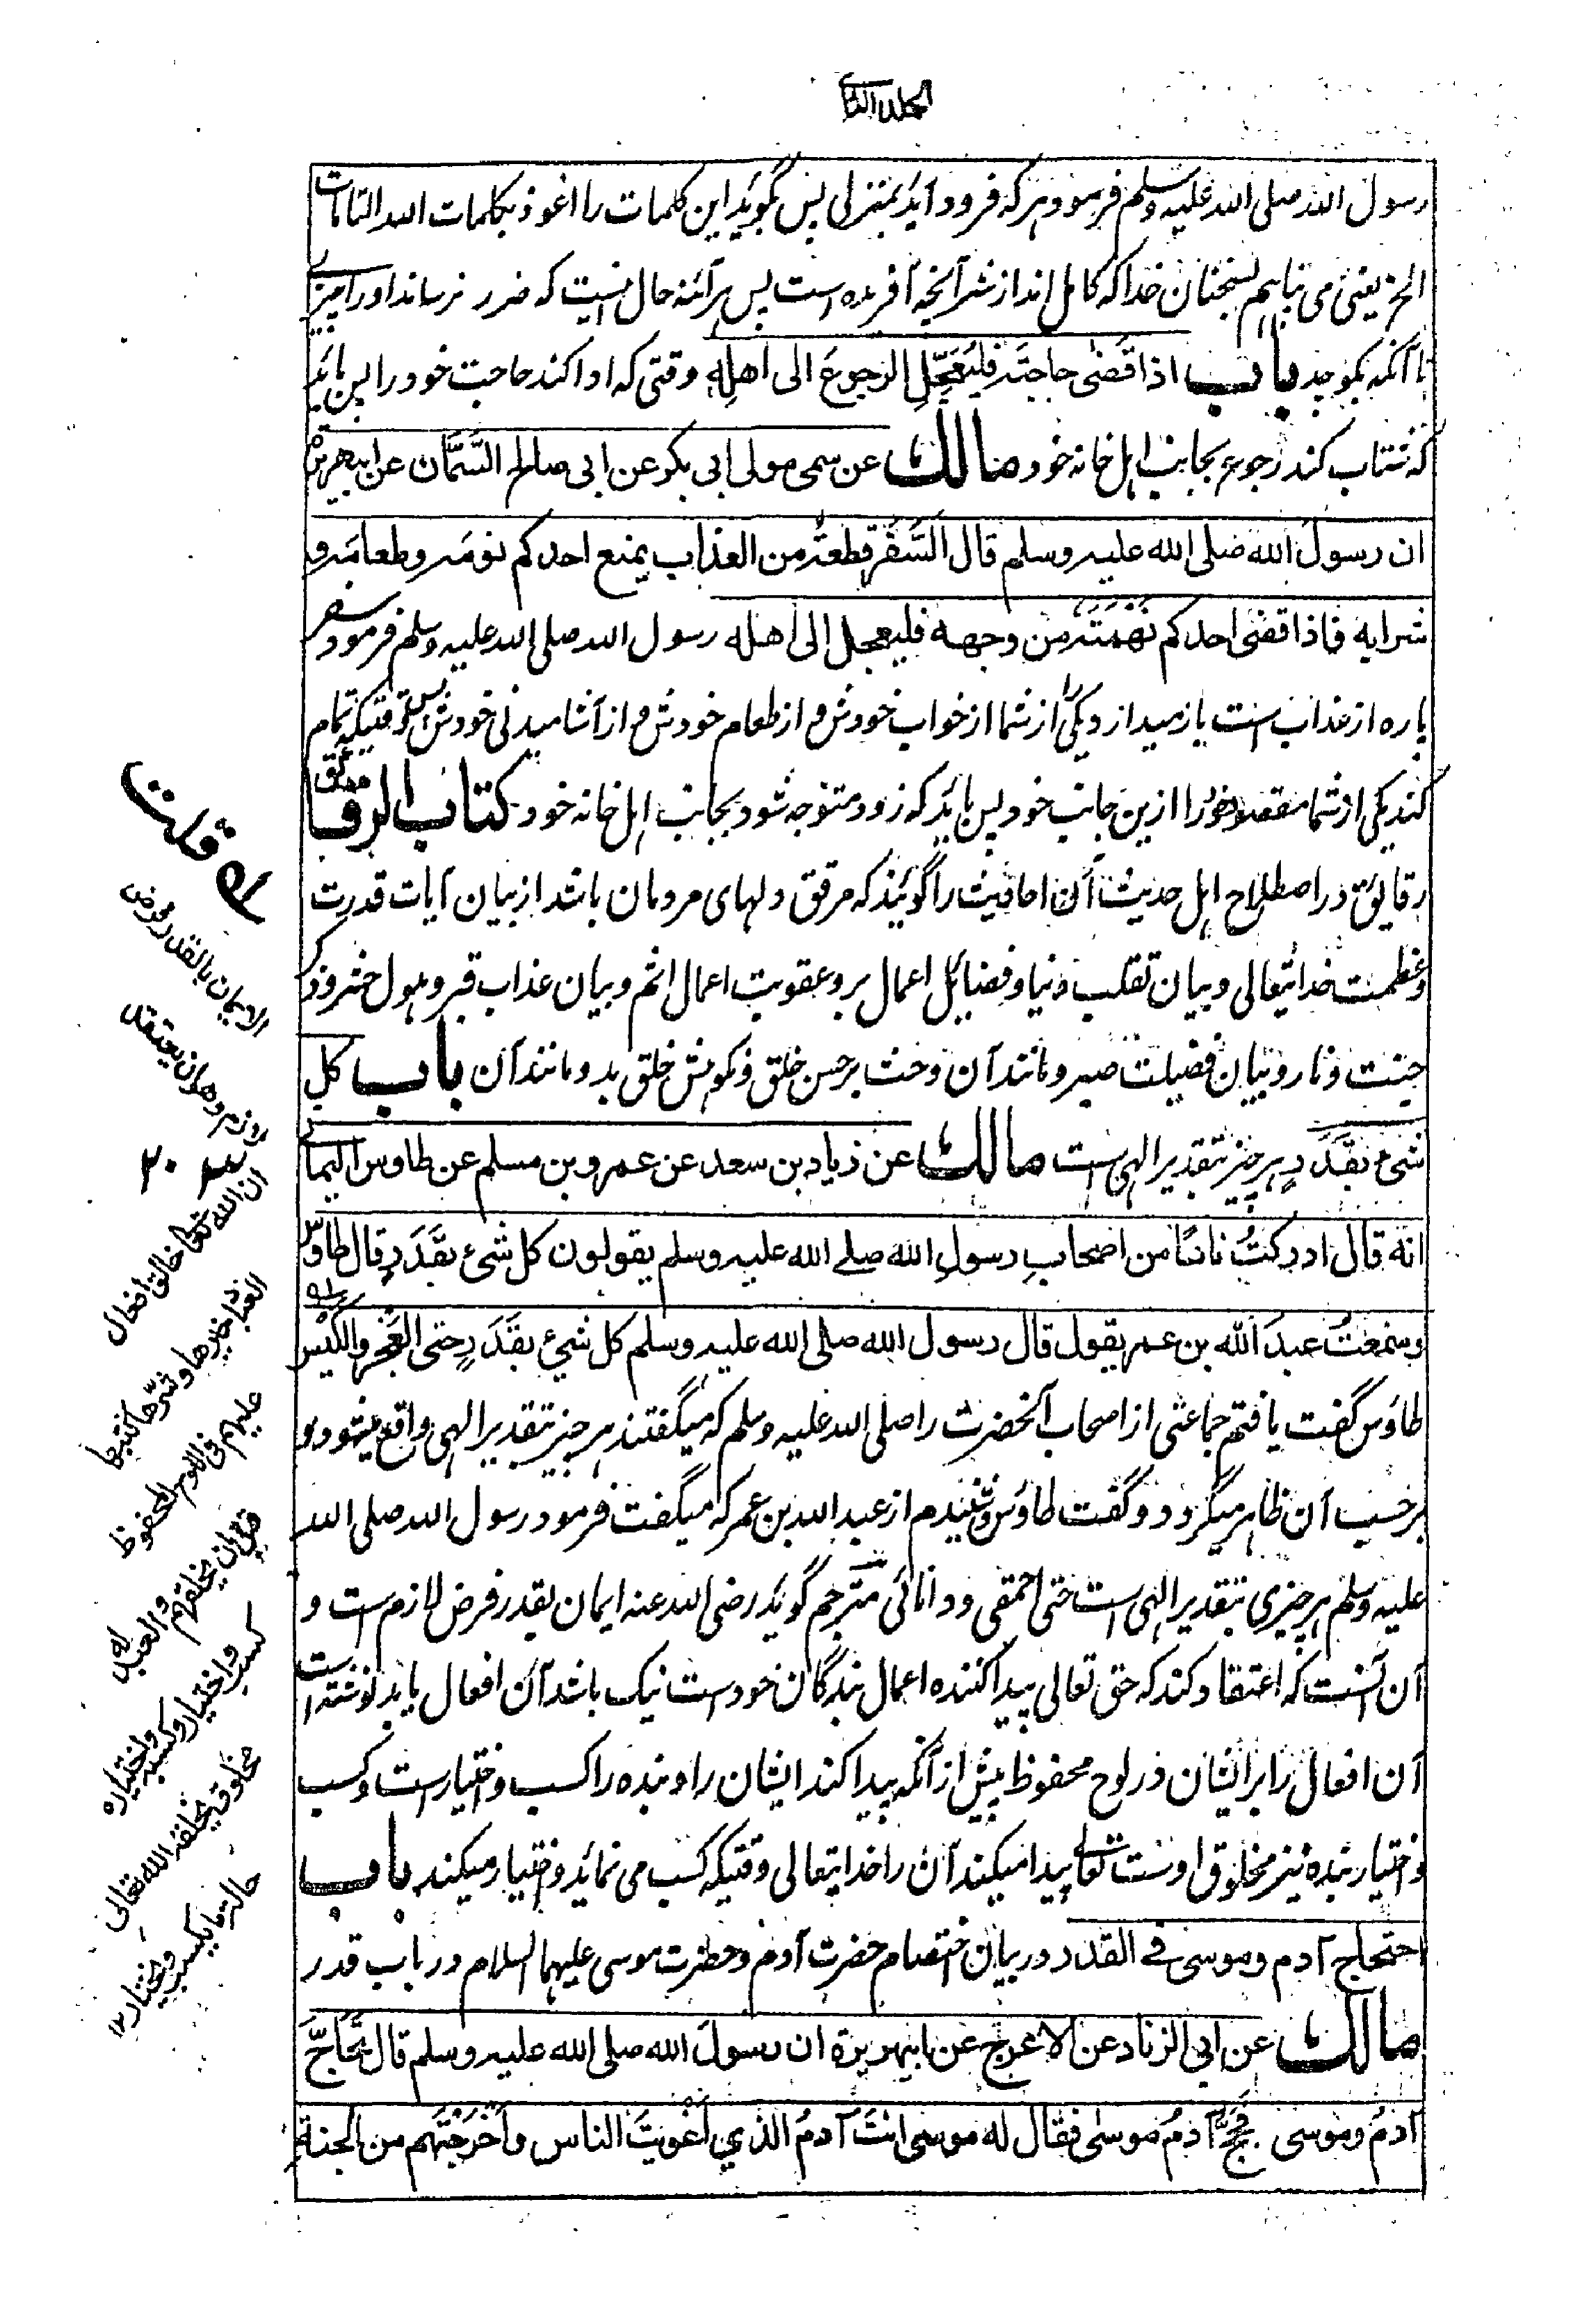 المجلد الثانی
رسول الله صلی الله علیه وسلم فرمود هر که فرود آید بمنزلی پس بگوید این کلمات را اعوذ بکلمات الله التامات
الخ یعنی می پناهم بسخنان خدا که کامل اند از شر آنچه آفریده است پس هر آئنه حال اینست که ضرر نرساند اورا چیزی
تا آنکه بکوچد باب اذا قَضٰی حاجتَه فلیُعَجِّلِ الرجوعَ الی اهلِه وقتی که ادا کند حاجت خود را پس باید
که شتاب کند رجوع بجانب اهل خانه خود مالك عن سمی مولی ابی بکر عن ابی صالح السَّمَّان عن ابیهریرة
ان رسولَ الله صلی الله علیه وسلم قال السَّفَر قِطعةٌ من العذاب یمنع احدکم نومَه وطعامَه و
شرابه فاذا قضی احدکم نَهْمَتَه من وجهه فلیعجل الی اهله رسول الله صلی الله علیه وسلم فرمود سفر
پاره از عذاب است باز میدارد یکی را از شما از خواب خودش و از طعام خودش و از آشامیدنی خودش پس وقتیکه تمام
کند یکی از شما مقصود خود را ازین جانب خود پس باید که زود متوجه شود بجانب اهل خانه خود کتاب الرقائق
رقائق در اصطلاح اهل حدیث آن احادیث را گویند که مرقق دلهای مردمان باشد از بیان آیات قدرت
وعظمت خدایتعالی و بیان تقلب دنیا و فضایل اعمال بر و عقوبت اعمال اثم و بیان عذاب قبر و هول حشر و ذکر
جنت و نار و بیان فضیلت صبر و مانند آن و حث بر حسن خلق و نکوهش خلق بد و مانند آن باب کل
شیء بقَدَرٍ هر چیز بتقدیر الهی است مالك عن زیاد بن سعد عن عمرو بن مسلم عن طاوس الیمانی
انه قال ادرکتُ ناسًا من اصحابِ رسولِ الله صلی الله علیه وسلم یقولون کل شیء بقَدَرٍ قال طاوس
وسَمِعتُ عبدَ الله بن عمر یقول قال رسول الله صلی الله علیه وسلم کل شیء بقَدَرٍ حتی العَجْزُ والکَیْس
طاوس گفت یافتم جماعتی از اصحاب آنحضرت را صلی الله علیه وسلم که میگفتند هر چیز بتقدیر الهی واقع میشود و
برحسب آن ظاهر میگردد و گفت طاوس و شنیدم از عبد الله بن عمر که میگفت فرمود رسول الله صلی الله
علیه وسلم هر چیزی بتقدیر الهی است حتی احمقی و دانائی مترجم گوید رضی الله عنه ایمان بقدر فرض لازم است و
آن آنست که اعتقاد کند که حق تعالی پیدا کننده اعمال بندگان خود است نیک باشد آن افعال یا بد نوشته است
آن افعال را بر ایشان در لوح محفوظ پیش از آنکه پیدا کند ایشان را و بنده را کسب و اختیار است و کسب
و اختیار بنده نیز مخلوق اوست تعالی پیدا میکند آن را خدایتعالی وقتیکه کسب می نماید و اختیار میکند باب
احتجاج آدم وموسی فی القدر در بیان اختصام حضرت آدم و حضرت موسی علیهما السلام در باب قدر
مالك عن ابی الزناد عن الاعرج عن ابیهریرة ان رسولَ الله صلی الله علیه وسلم قال تَحَاجَّ
آدمُ وموسی فحَجَّ آدمُ موسٰی فقال له موسی انتَ آدمُ الذی اَغْوَیتَ الناس واَخْرَجْتَهم من الجنةِ
قلت
الایمان بالقدر فرض
لازم وهو ان یعتقد
ان الله تعالی خالق افعال
العباد خیرها وشرّها کتبها
علیهم فی اللوح المحفوظ
قبل ان یخلقهم والعبد له
کسب واختیار وکسبه واختیاره
مخلوق یخلقه الله تعالی
حالة ما یکسب ویختار ۱۲